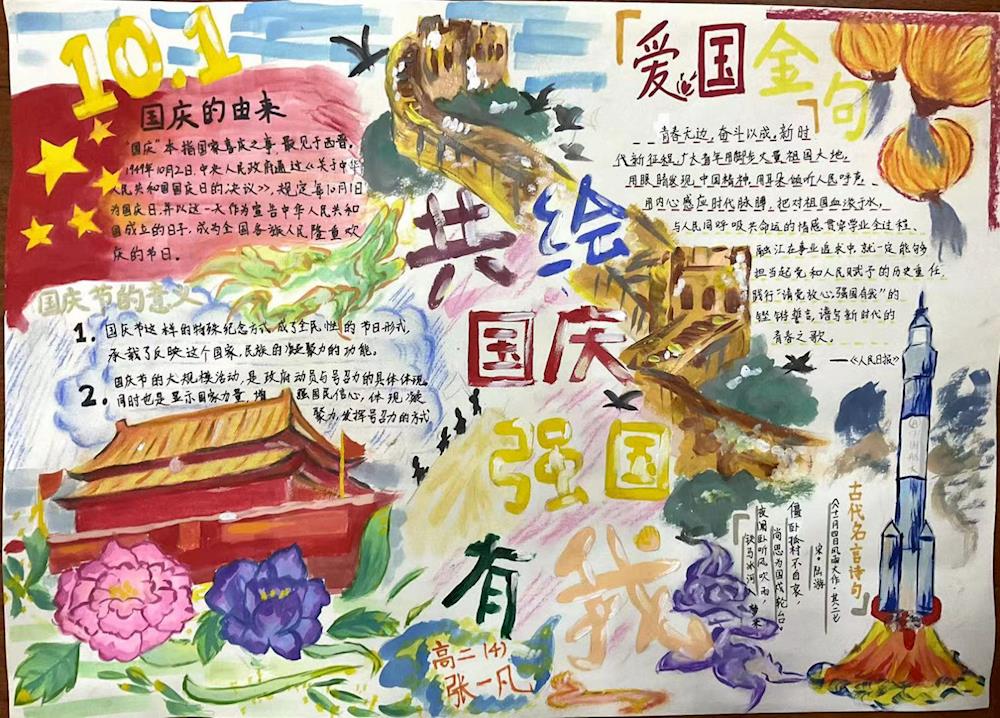 10.1
国庆的由来
"国庆"本指国家喜庆之事,最见于西晋。
1949年10月2日,中央人民政府通过《关于中华
人民共和国国庆日的决议》,规定每10月1日
为国庆日,并以这一天作为宣告中华人民共和
国成立的日子,成为全国各族人民隆重欢
庆的节日。
国庆节的意义
1. 国庆节这样的特殊纪念方式成了全民性的节日形式,
承载了反映这个国家,民族的凝聚力的功能。
2. 国庆节的大规模活动,是政府动员与号召力的具体体现。
同时也是显示国家力量,增强国民信心,体现凝
聚力,发挥号召力的方式
共绘
国庆
强国
有我
高二(4)
张一凡
「爱国金句」
青春无边,奋斗以成,新时
代新征程,广大青年用脚步丈量祖国大地,
用眼睛发现中国精神,用耳朵倾听人民呼声,
用内心感应时代脉搏,把对祖国血浓于水,
与人民同呼吸共命运的情感贯穿学业全过程、
融汇在事业追求中,就一定能够
担当起党和人民赋予的历史重任,
践行"请党放心,强国有我"的
铿锵誓言,谱写新时代的
青春之歌。
——《人民日报》
「古代名言诗句」
《十一月四日风雨大作·其二》
宋·陆游
僵卧孤村不自哀,
尚思为国戍轮台。
夜阑卧听风吹雨,
铁马冰河入梦来